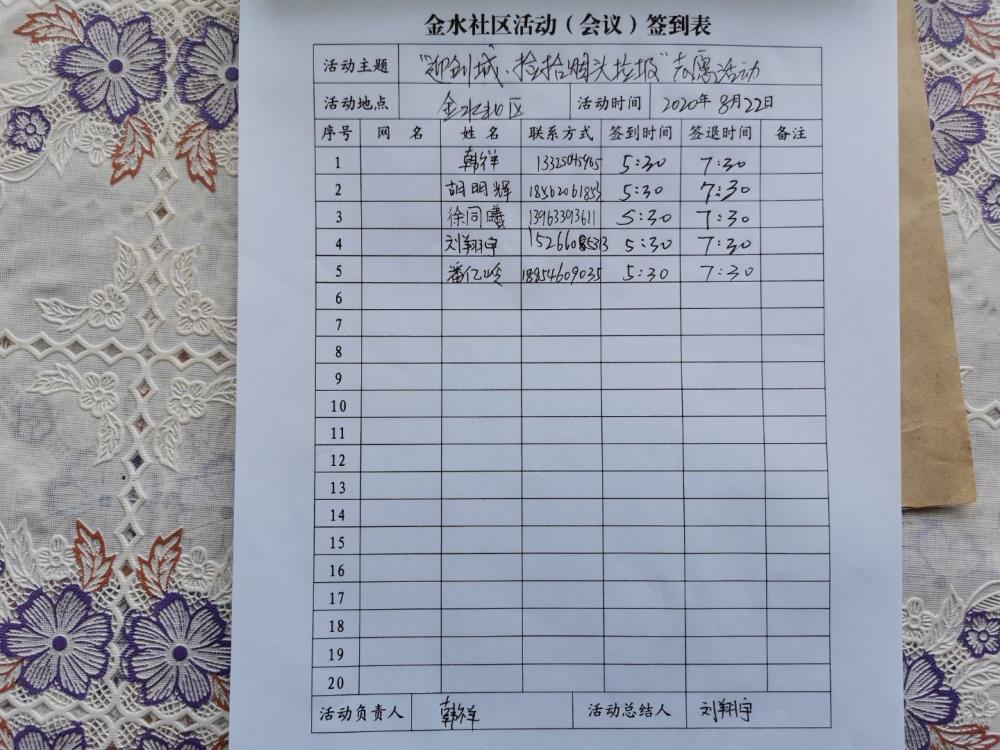 金水社区活动（会议）签到表
活动主题 “迎创城、捡拾烟头垃圾”志愿活动
活动地点 金水社区 活动时间 2020年8月22日
序号 网 名 姓 名 联系方式 签到时间 签退时间 备注
1 韩祥 5:30 7:30
2 胡明辉 18562061853 5:30 7:30
3 徐同曦 13963393611 5:30 7:30
4 刘翔宇 15266085313 5:30 7:30
5 潘亿岭 18854609035 5:30 7:30
6
7
8
9
10
11
12
13
14
15
16
17
18
19
20
活动负责人 韩祥 活动总结人 刘翔宇